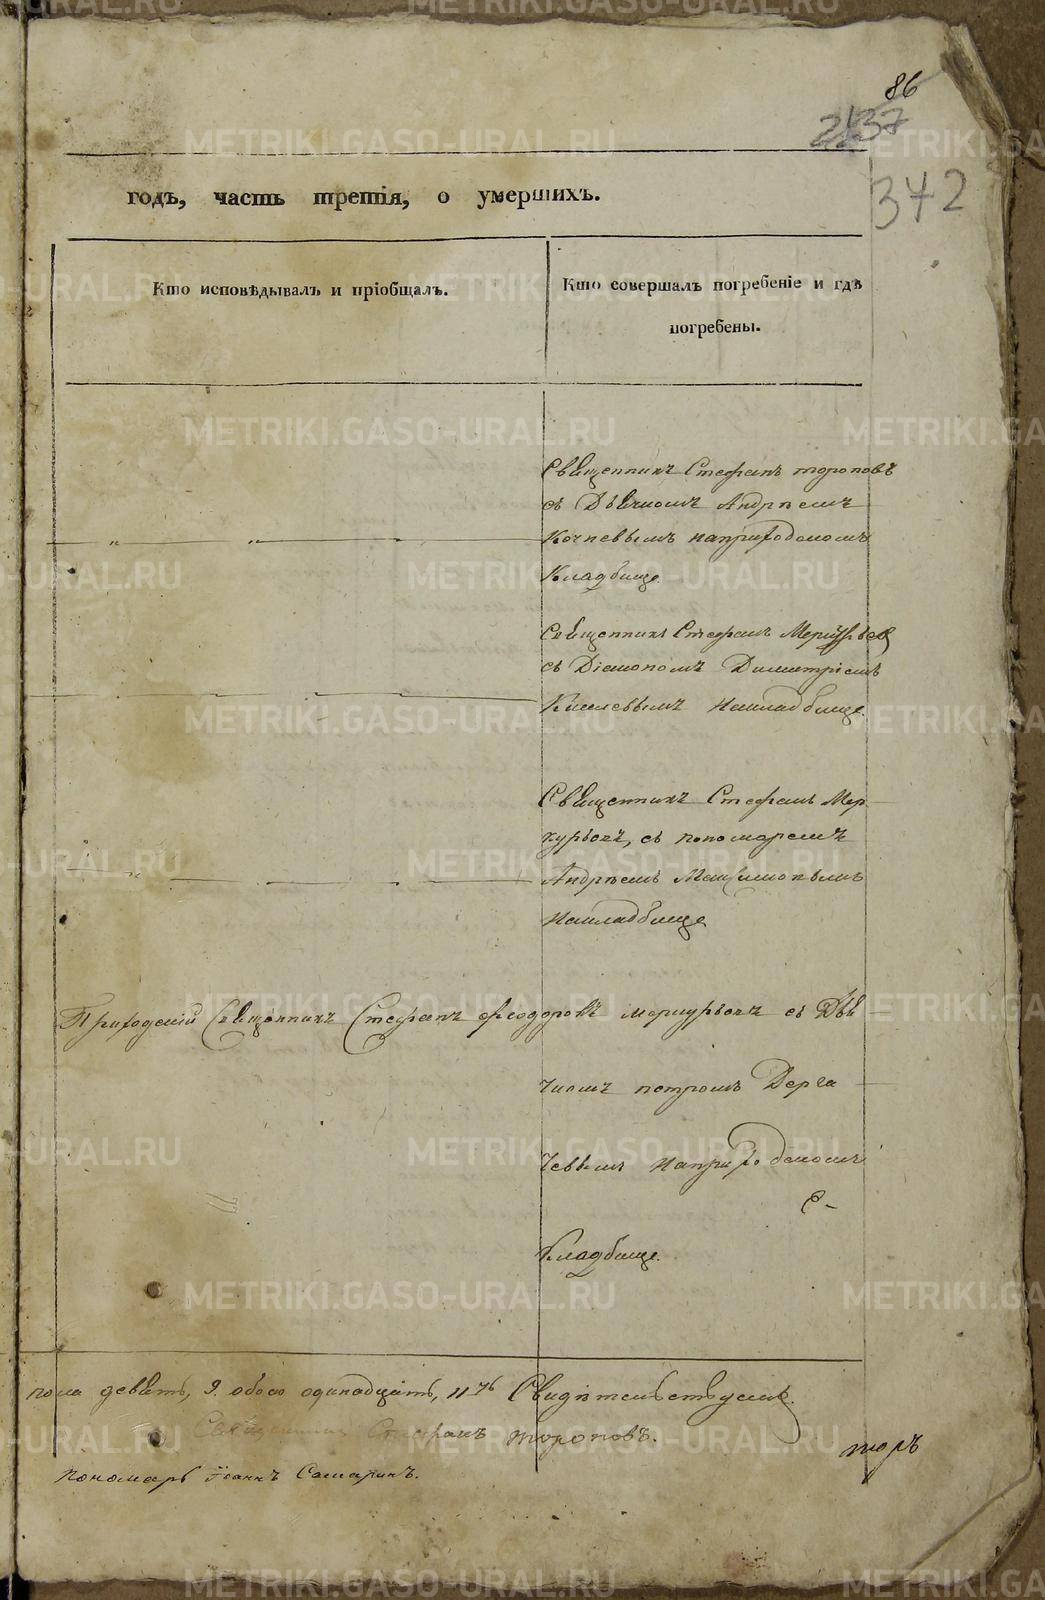 86
2137
342
годъ, часть третія, о умершихъ.
Кто исповѣдывалъ и пріобщалъ.
Кто совершалъ погребеніе и гдѣ
погребены.
Священникъ Стефанъ тороповъ
съ Дьячкомъ Андрѣемъ
Кочневымъ наприходскомъ
Кладбище
Священникъ Стефанъ Меркурьевъ
съ Діакономъ Димитріемъ
Киселевымъ Накладбище
Священникъ Стефанъ Мер
курьевъ, съ пономаремъ
Андрѣемъ Максимовымъ
Накладбище
Приходскій Священникъ Стефанъ Феодоровъ меркурьевъ съ Дья
чкомъ петромъ Дерга
чевымъ Наприходскомъ
Кладбище.
пола девять, 9. обоего одинадцать, 11ть Свидѣтельствуемъ.
Священникъ Стефанъ тороповъ.
Пономарь Іоаннъ Самаринъ.
торъ
METRIKI.GASO-URAL.RU